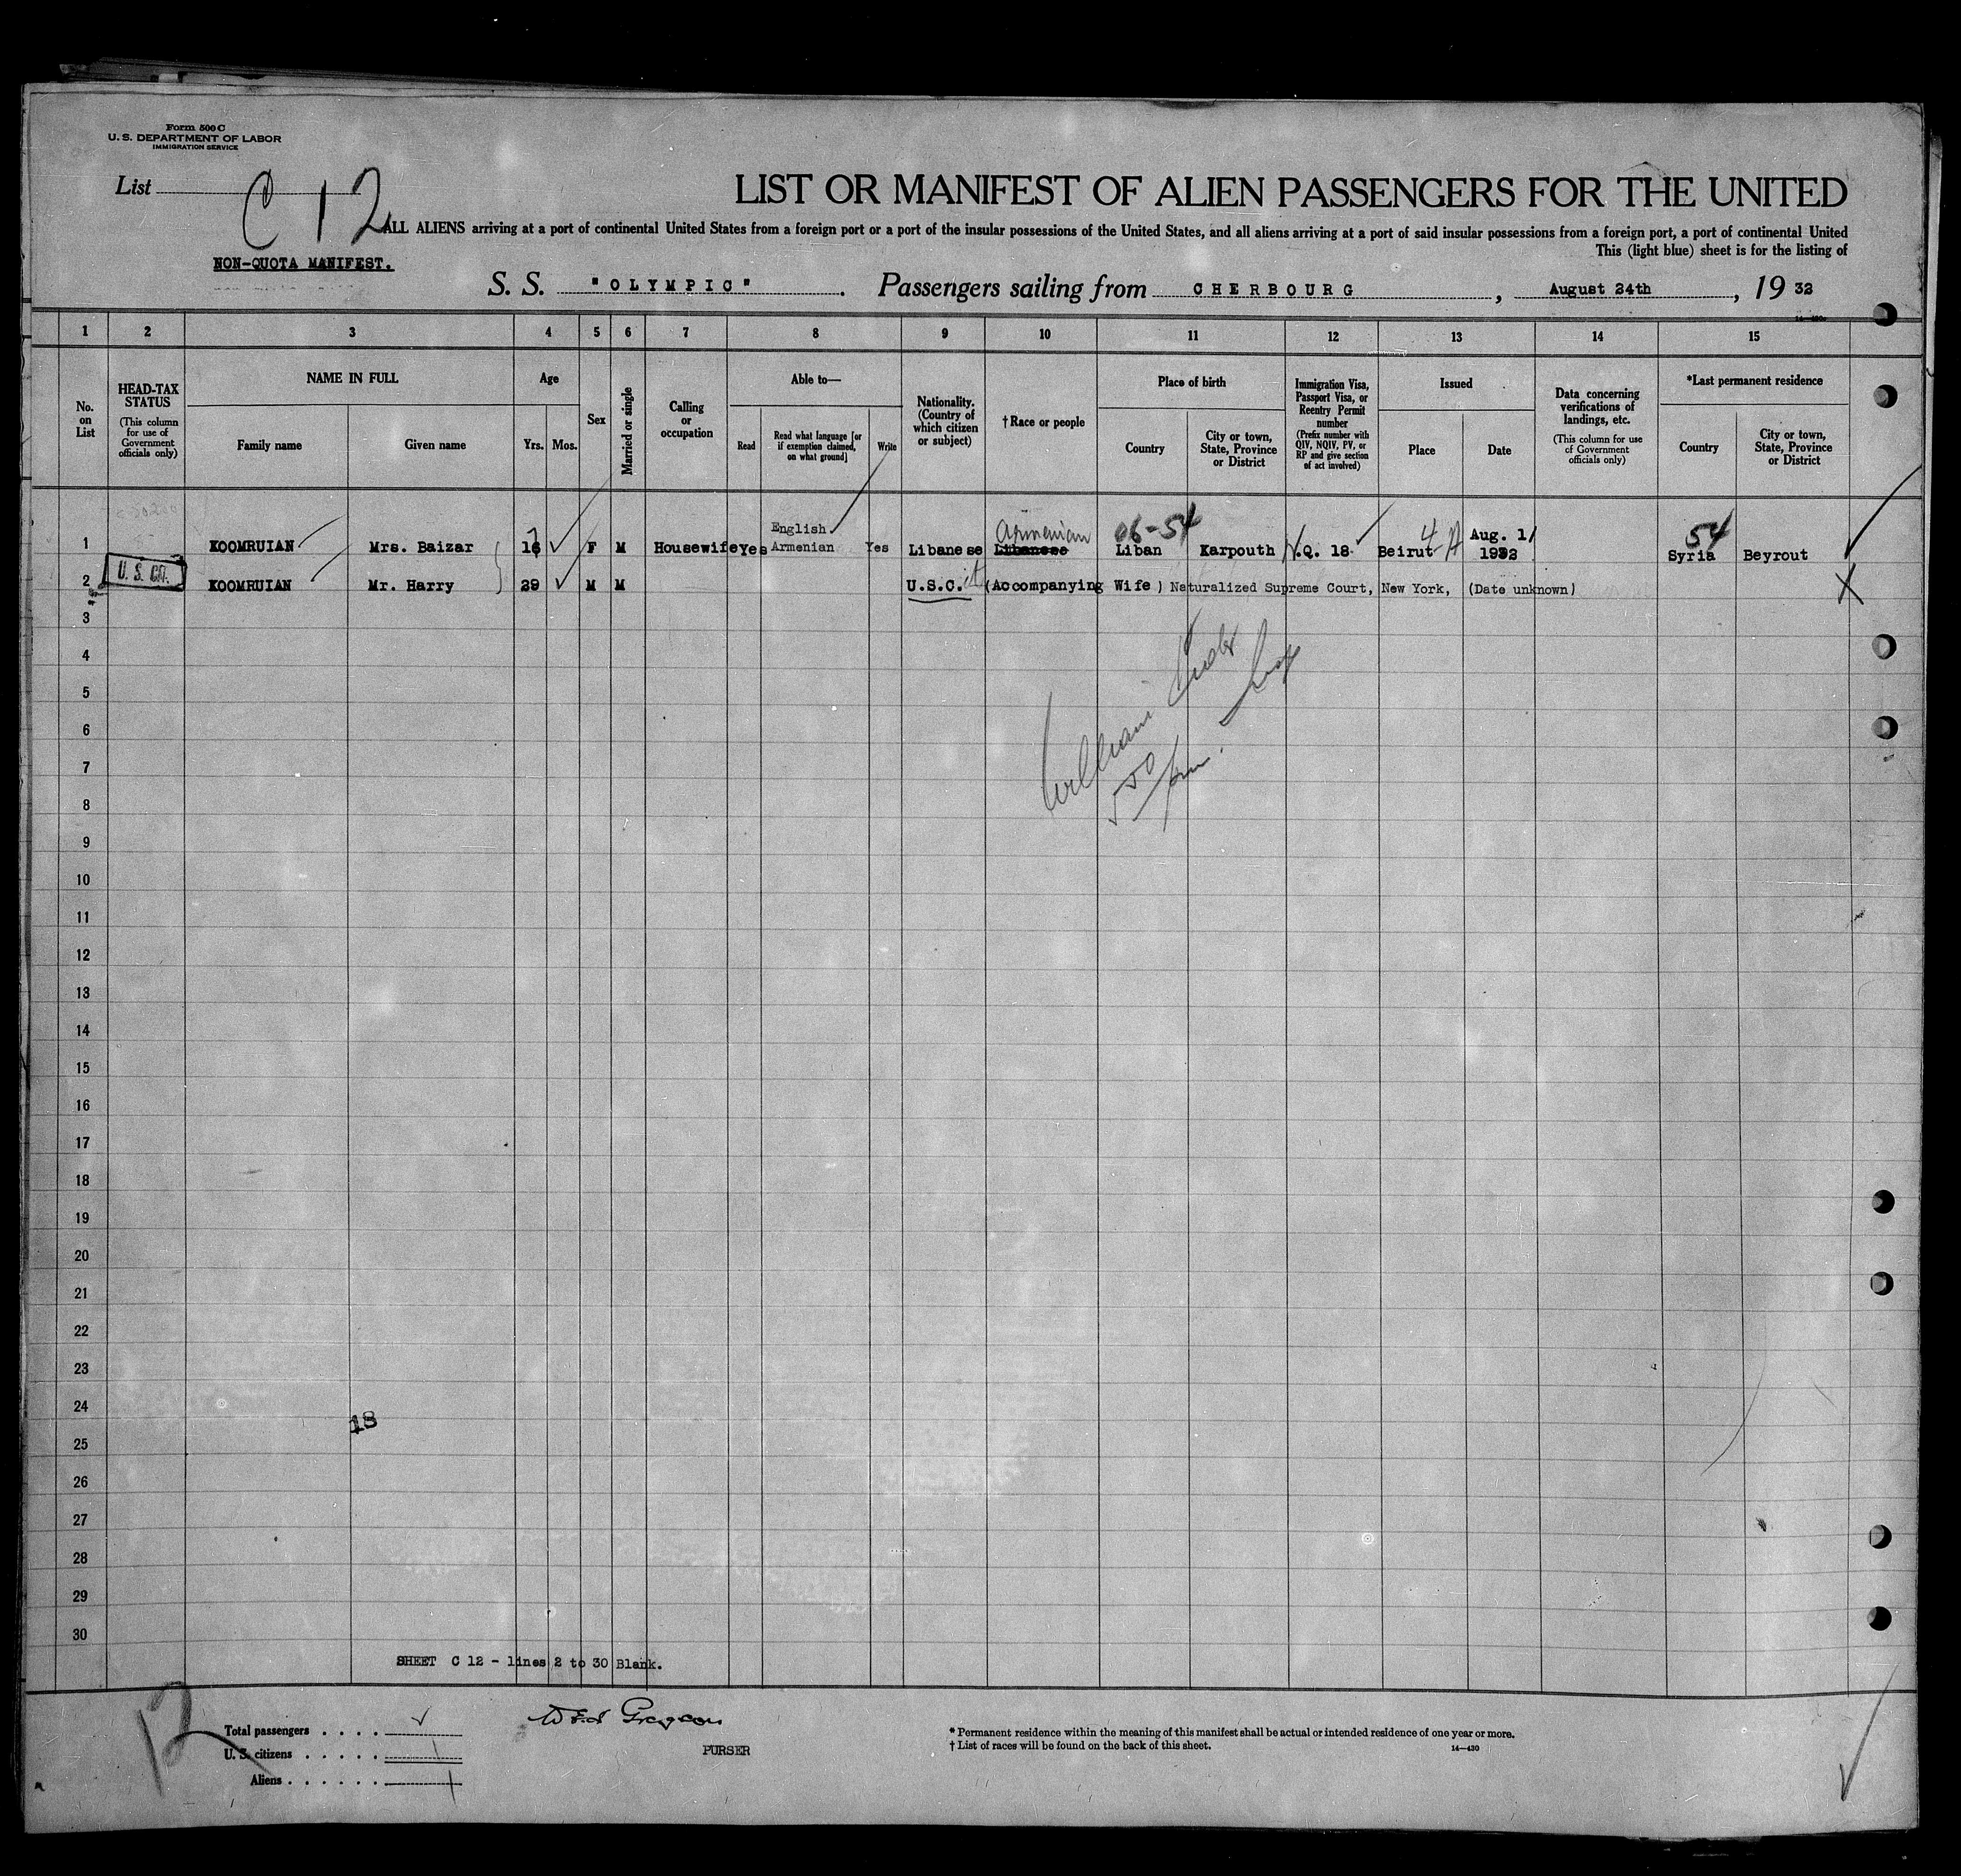 Form 500 C
U. S. DEPARTMENT OF LABOR
IMMIGRATION SERVICE
List C 12
LIST OR MANIFEST OF ALIEN PASSENGERS FOR THE UNITED
ALL ALIENS arriving at a port of continental United States from a foreign port or a port of the insular possessions of the United States, and all aliens arriving at a port of said insular possessions from a foreign port, a port of continental United
This (light blue) sheet is for the listing of
NON-QUOTA MANIFEST.
S. S. "OLYMPIC". Passengers sailing from CHERBOURG, August 24th, 19 32
1 2 3 4 5 6 7 8 9 10 11 12 13 14 15
No. on List
HEAD-TAX STATUS
(This column for use of Government officials only)
NAME IN FULL
Family name
Given name
Age
Yrs. Mos.
Sex
Married or single
Calling or occupation
Able to—
Read
Read what language [or if exemption claimed, on what ground]
Write
Nationality. (Country of which citizen or subject)
†Race or people
Place of birth
Country
City or town, State, Province or District
Immigration Visa, Passport Visa, or Reentry Permit number
(Prefix number with QIV, NQIV, PV, or RP and give section of act involved)
Issued
Place
Date
Data concerning verifications of landings, etc.
(This column for use of Government officials only)
*Last permanent residence
Country
City or town, State, Province or District
Armenian 06-54 4 54
1 KOOMRUIAN Mrs. Baizar 16 F M Housewife Yes English Armenian Yes Libanese Libanese Liban Karpouth N.Q. 18 Beirut Aug. 1/ 1932 Syria Beyrout
U. S. CIT.
2 KOOMRUIAN Mr. Harry 29 M M U.S.C. it (Accompanying Wife) Naturalized Supreme Court, New York, (Date unknown)
3
4
5
6
7
8
9
10
11
12
13
14
15
16
17
18
19
20
21
22
23
24
18
25
26
27
28
29
30
SHEET C 12 - lines 2 to 30 Blank.
12
Total passengers . . . .
U. S. citizens . . . . . 1
Aliens . . . . . . 1
PURSER
* Permanent residence within the meaning of this manifest shall be actual or intended residence of one year or more.
† List of races will be found on the back of this sheet.
14—430